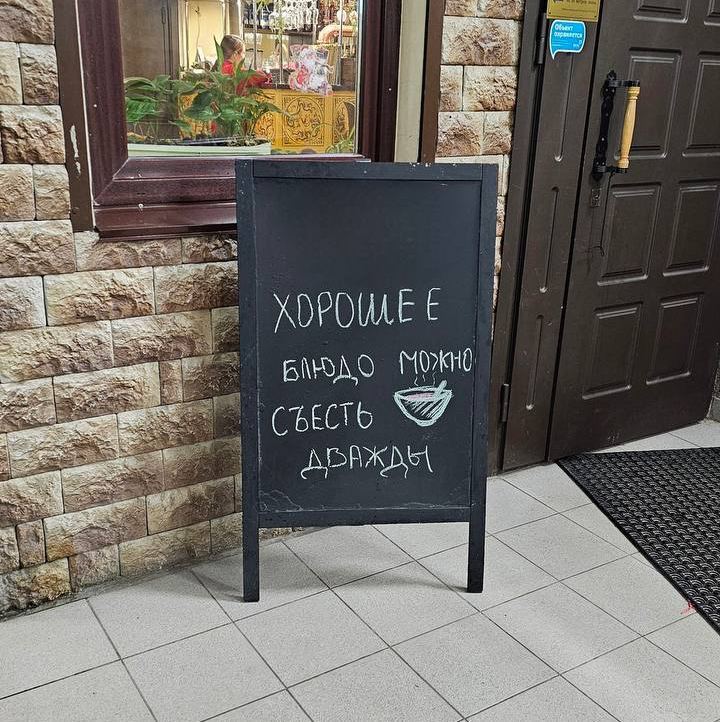 Объект
охраняется
ХОРОШЕЕ
БЛЮДО МОЖНО
СЪЕСТЬ
ДВАЖДЫ